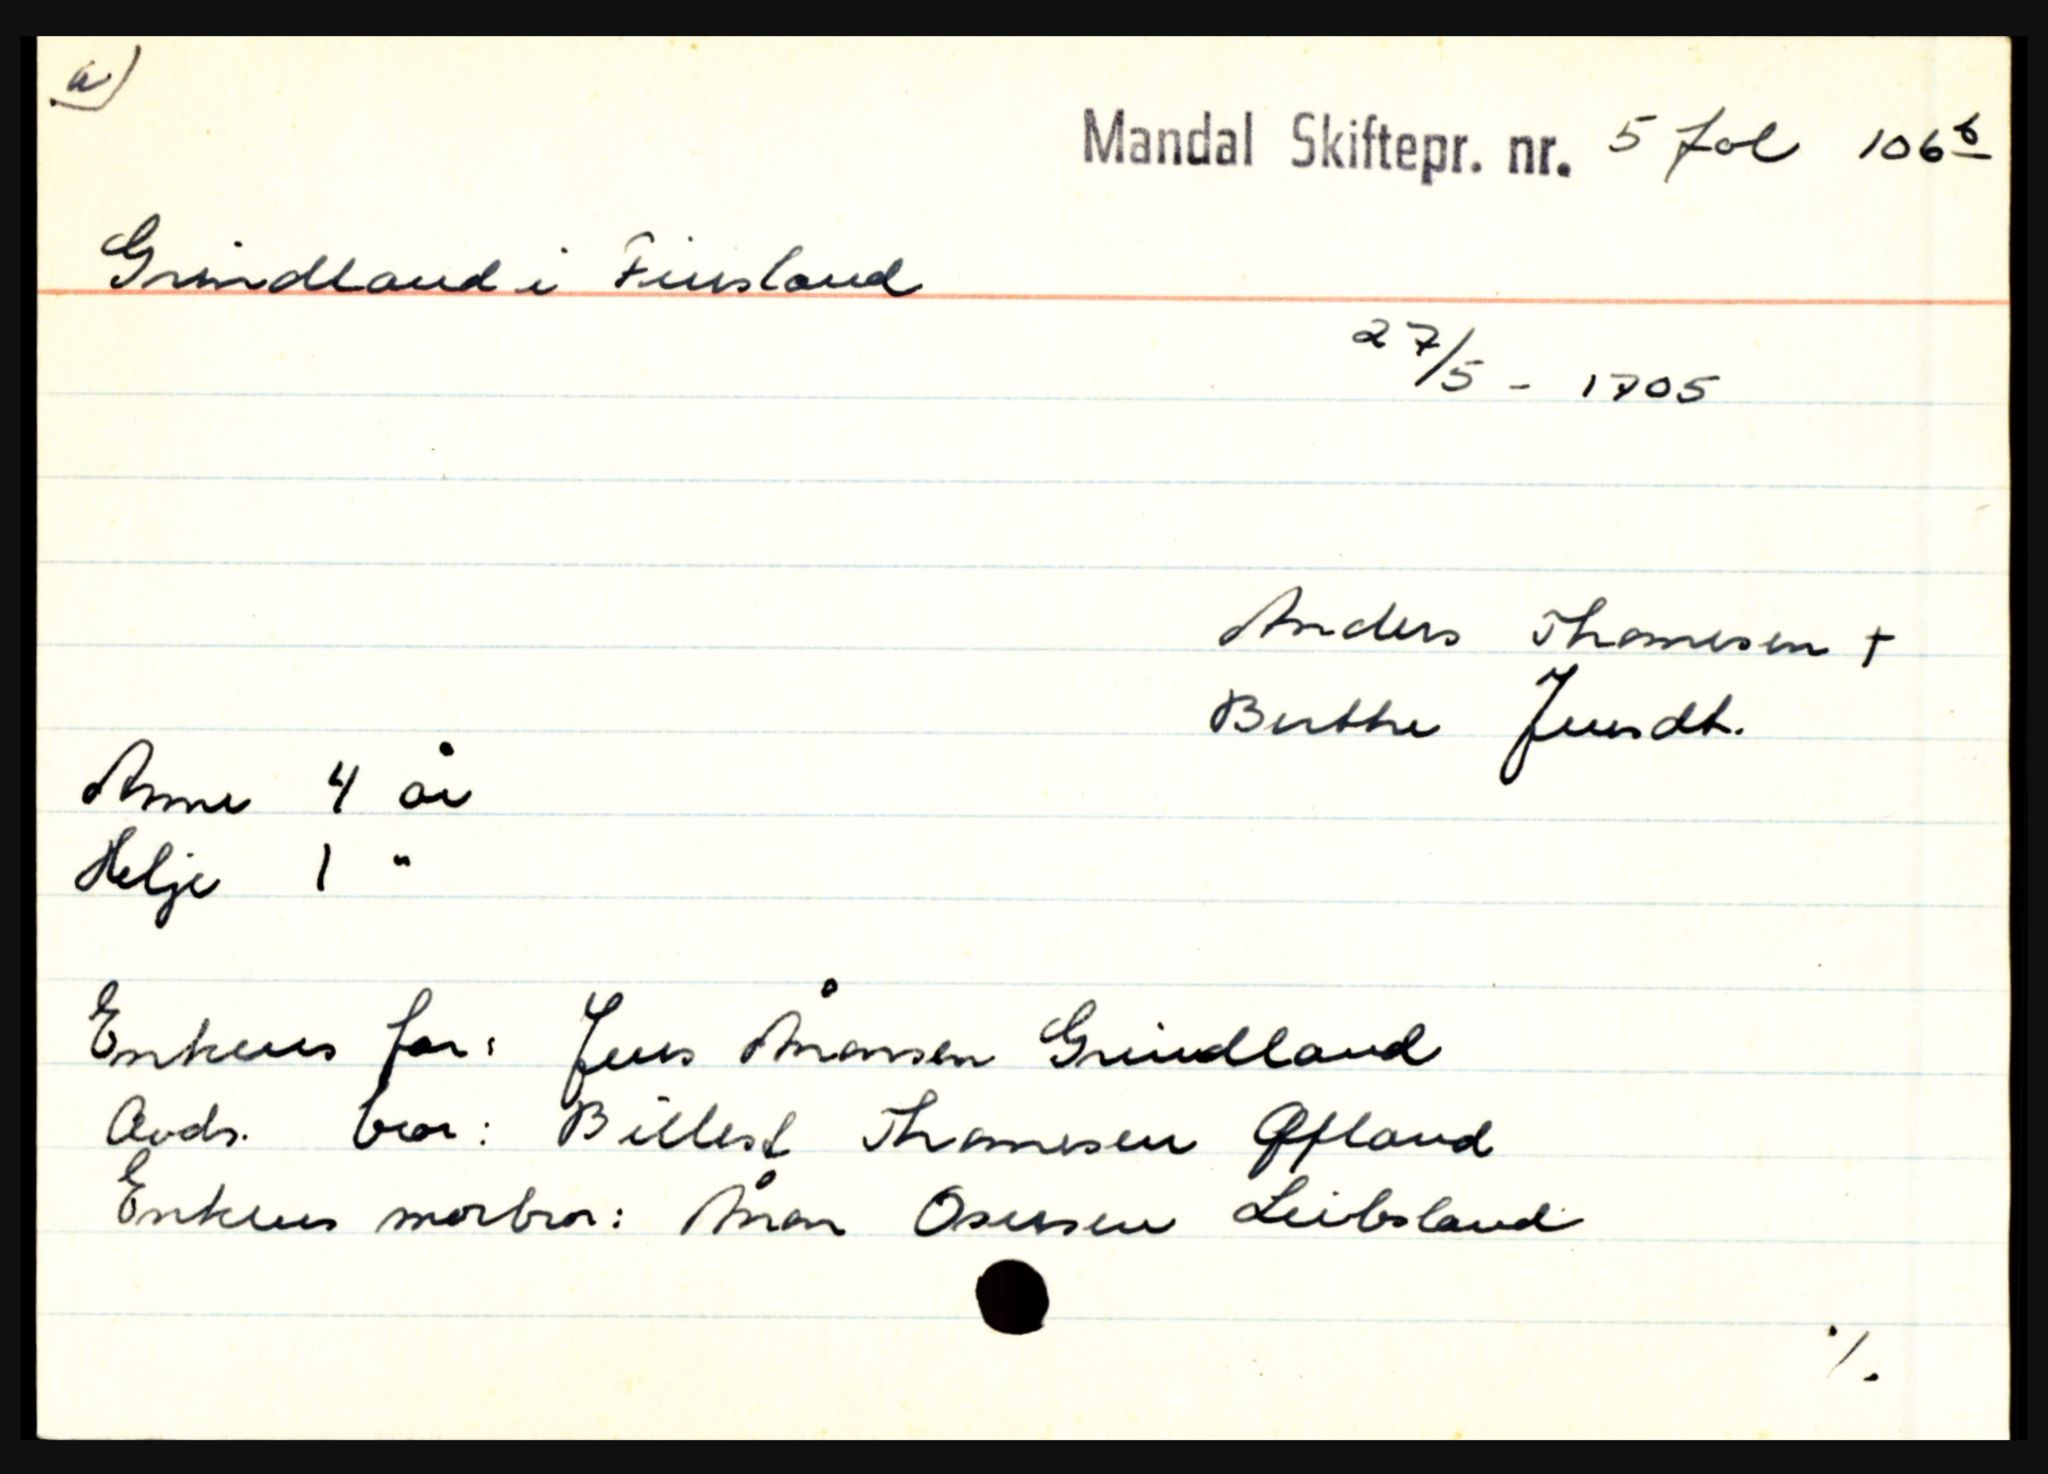 a)
Mandal Skiftepr. nr. 5 fol 106b
Grindland i Finsland
27/5 - 1705
Anders Thomesen +
Berthe Jensdt.
Anne 4 år
Helje 1 "
Enkens far: Jens Ånonsen Grindland
Avds. bror: Billest Thomesen Øfland
Enkens morbror: Ånon Osensen Leibsland
./.